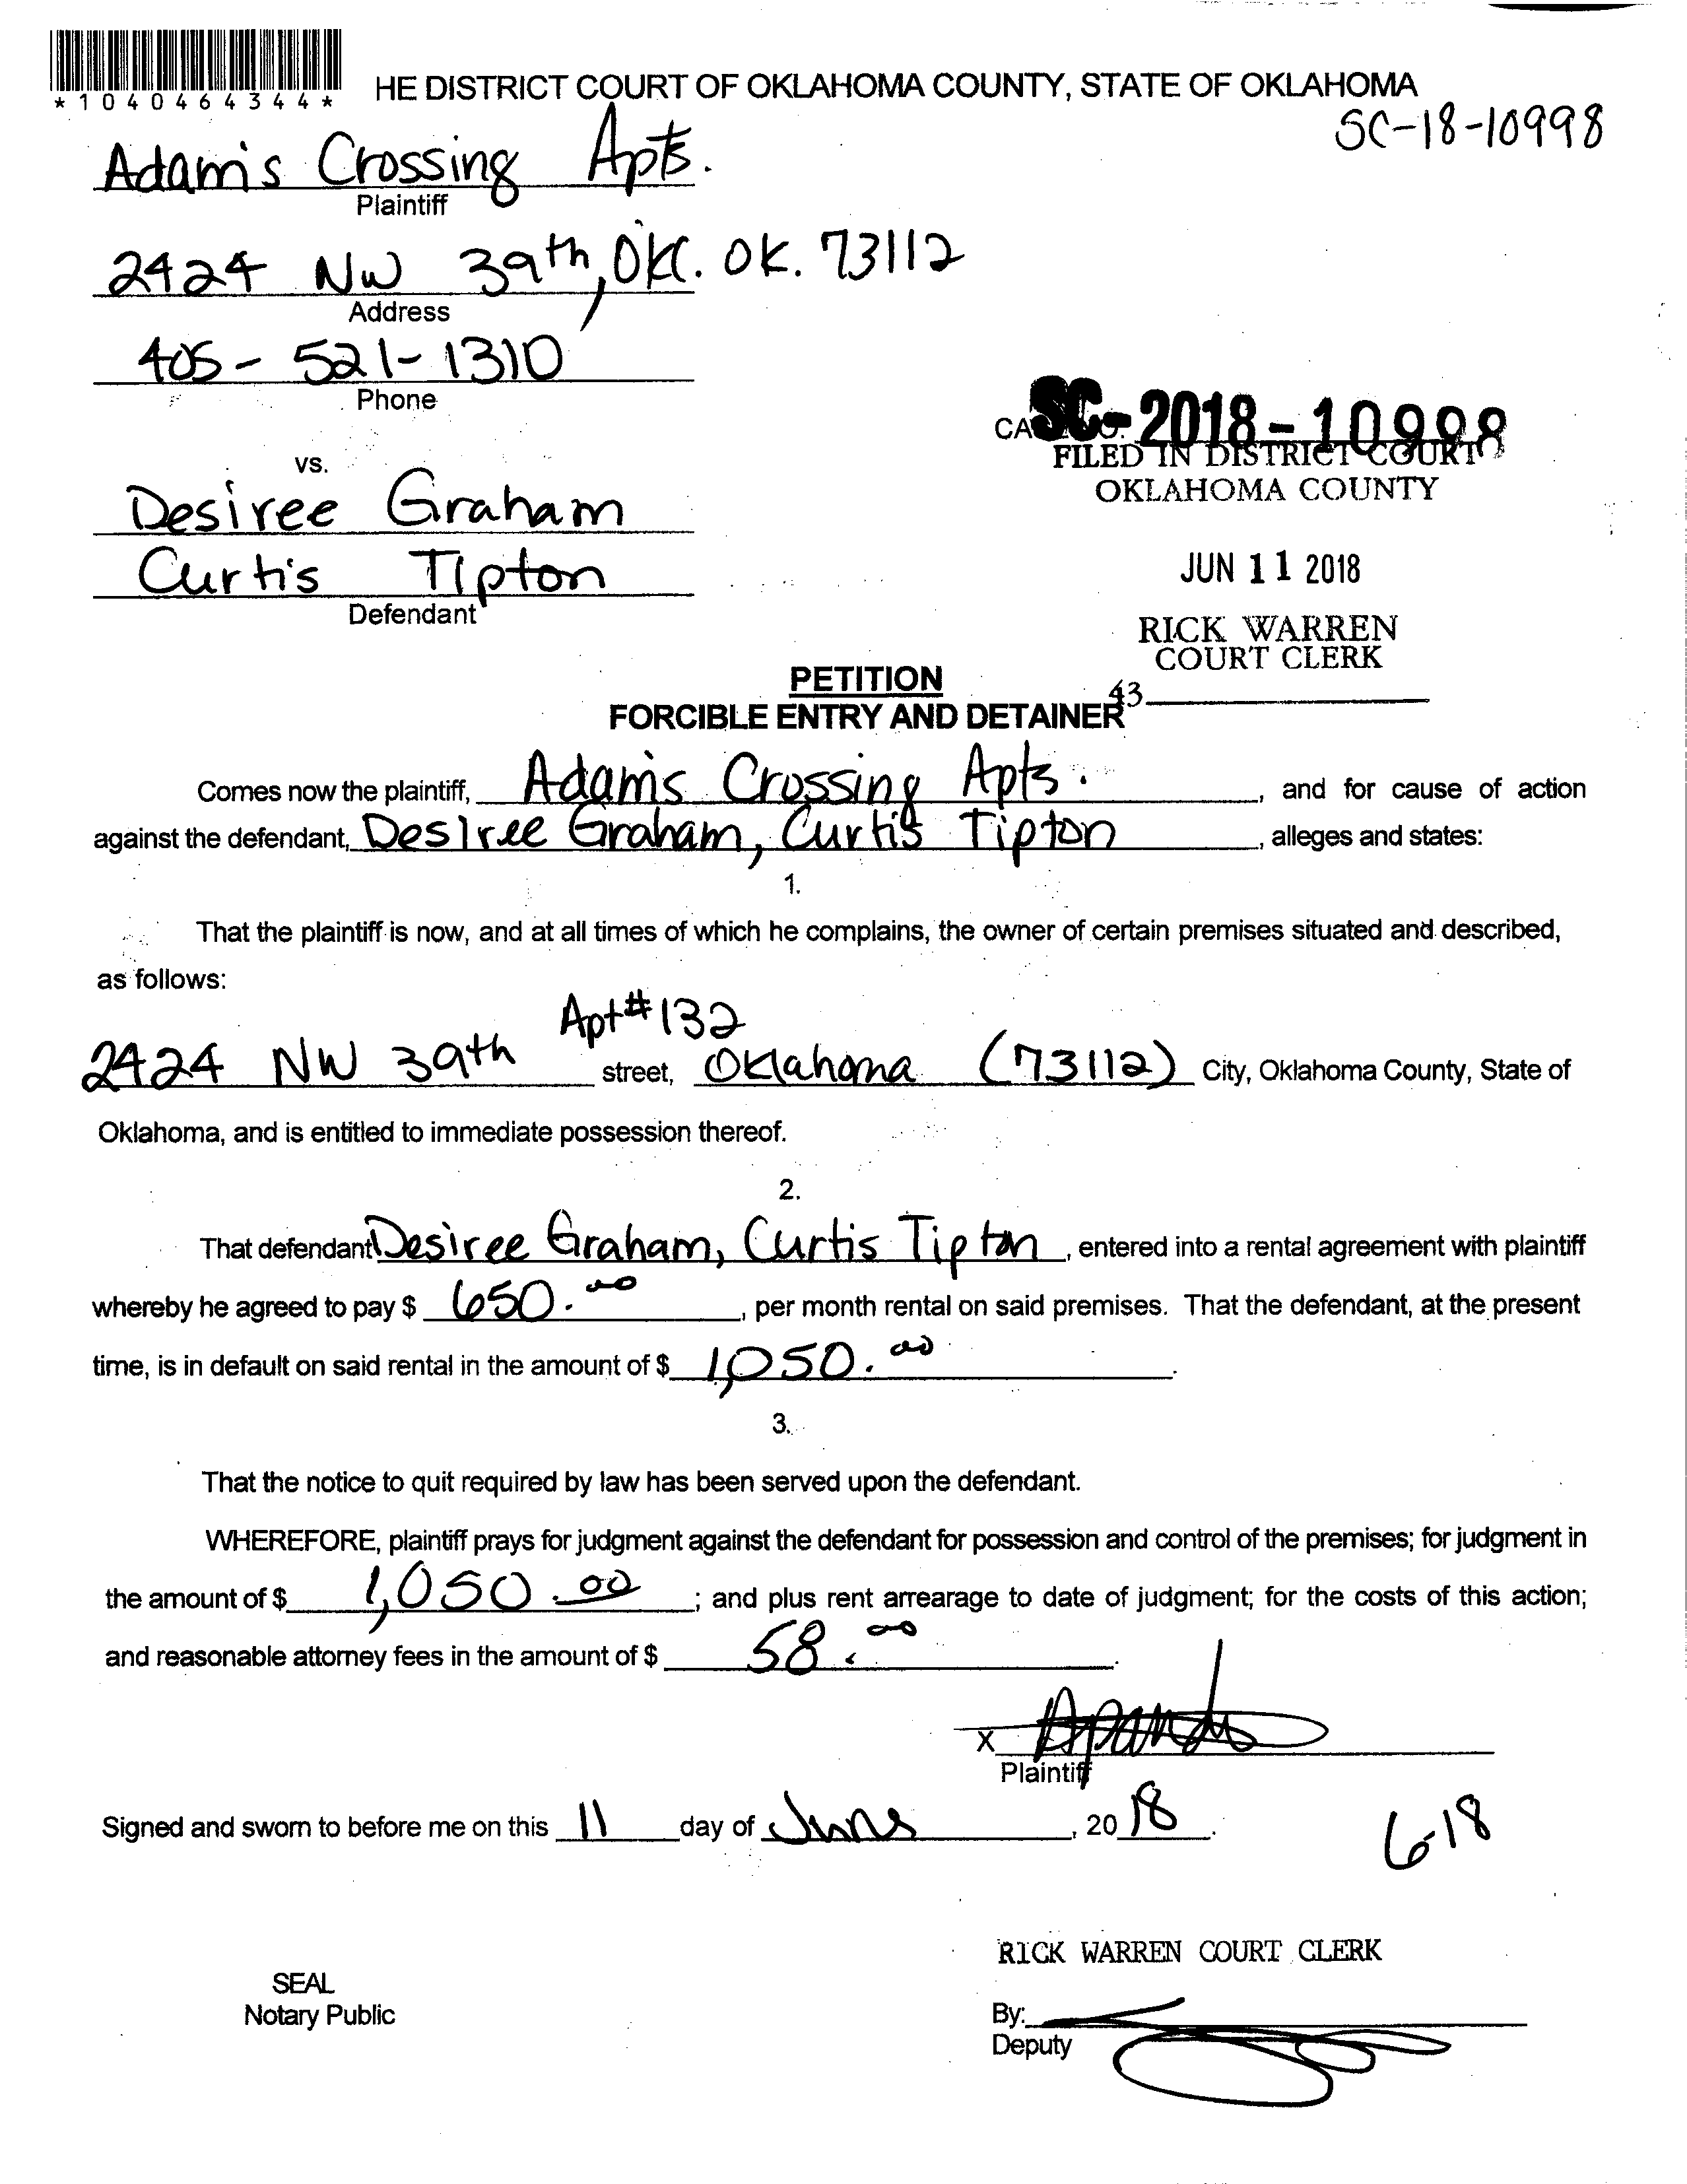 *1040464344*
HE DISTRICT COURT OF OKLAHOMA COUNTY, STATE OF OKLAHOMA
SC-18-10998
Adam's Crossing Apts.
Plaintiff
2424 NW 39th, OKC. OK. 73112
Address
405-521-1310
Phone
SC-2018-10998
FILED IN DISTRICT COURT
OKLAHOMA COUNTY
vs.
Desiree Graham
JUN 11 2018
Curtis Tipton
Defendant
RICK WARREN
COURT CLERK
43
PETITION
FORCIBLE ENTRY AND DETAINER
Comes now the plaintiff, Adam's Crossing Apts., and for cause of action
against the defendant, Desiree Graham, Curtis Tipton, alleges and states:
1.
That the plaintiff is now, and at all times of which he complains, the owner of certain premises situated and described,
as follows:
Apt#132
2424 NW 39th street, Oklahoma (73112) City, Oklahoma County, State of
Oklahoma, and is entitled to immediate possession thereof.
2.
That defendant Desiree Graham, Curtis Tipton, entered into a rental agreement with plaintiff
whereby he agreed to pay $ 650.00, per month rental on said premises. That the defendant, at the present
time, is in default on said rental in the amount of $ 1,050.00.
3.
That the notice to quit required by law has been served upon the defendant.
WHEREFORE, plaintiff prays for judgment against the defendant for possession and control of the premises; for judgment in
the amount of $ 1,050.00; and plus rent arrearage to date of judgment; for the costs of this action;
and reasonable attorney fees in the amount of $ 58.00.
X
Plaintiff
Signed and sworn to before me on this 11 day of June, 2018.
6-18
RICK WARREN COURT CLERK
SEAL
Notary Public
By:
Deputy